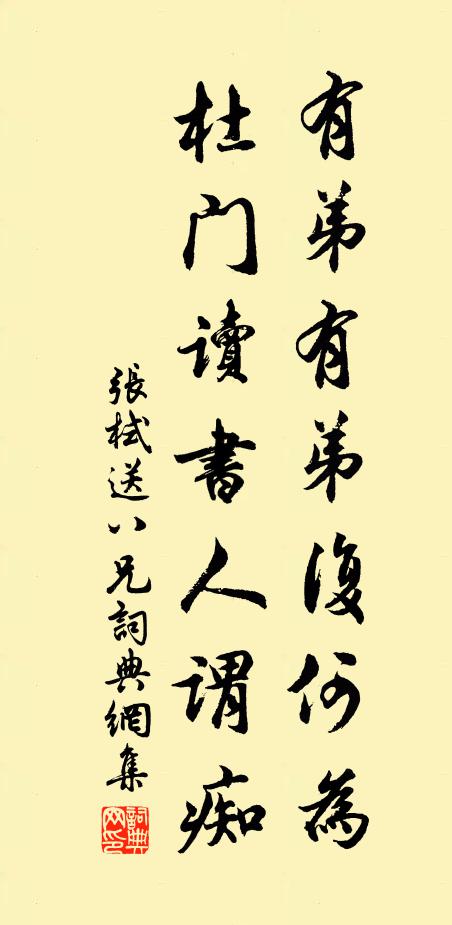 有弟有弟復何為
杜門讀書人謂痴
張栻送八兄詞典網集
詞典網印